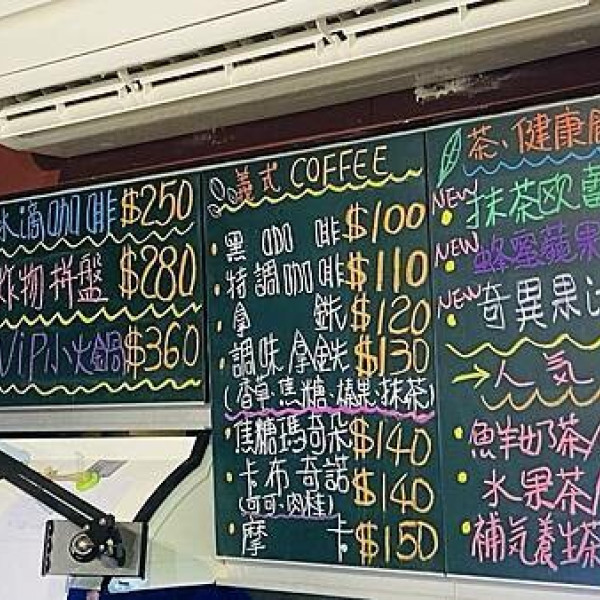 冰滴咖啡 $250
炸物拼盤 $280
VIP小火鍋 $360
義式 COFFEE
黑咖啡 $100
特調咖啡 $110
拿鐵 $120
調味拿鐵 $130
(香草·焦糖·榛果·抹茶)
焦糖瑪奇朵 $140
卡布奇諾 $140
(可可·肉桂)
摩卡 $150
茶、健康
NEW 抹茶歐蕾
NEW 蜂蜜蘋果
NEW 奇異果汁
→人氣
鮮奶茶/
水果茶/
補氣養生茶